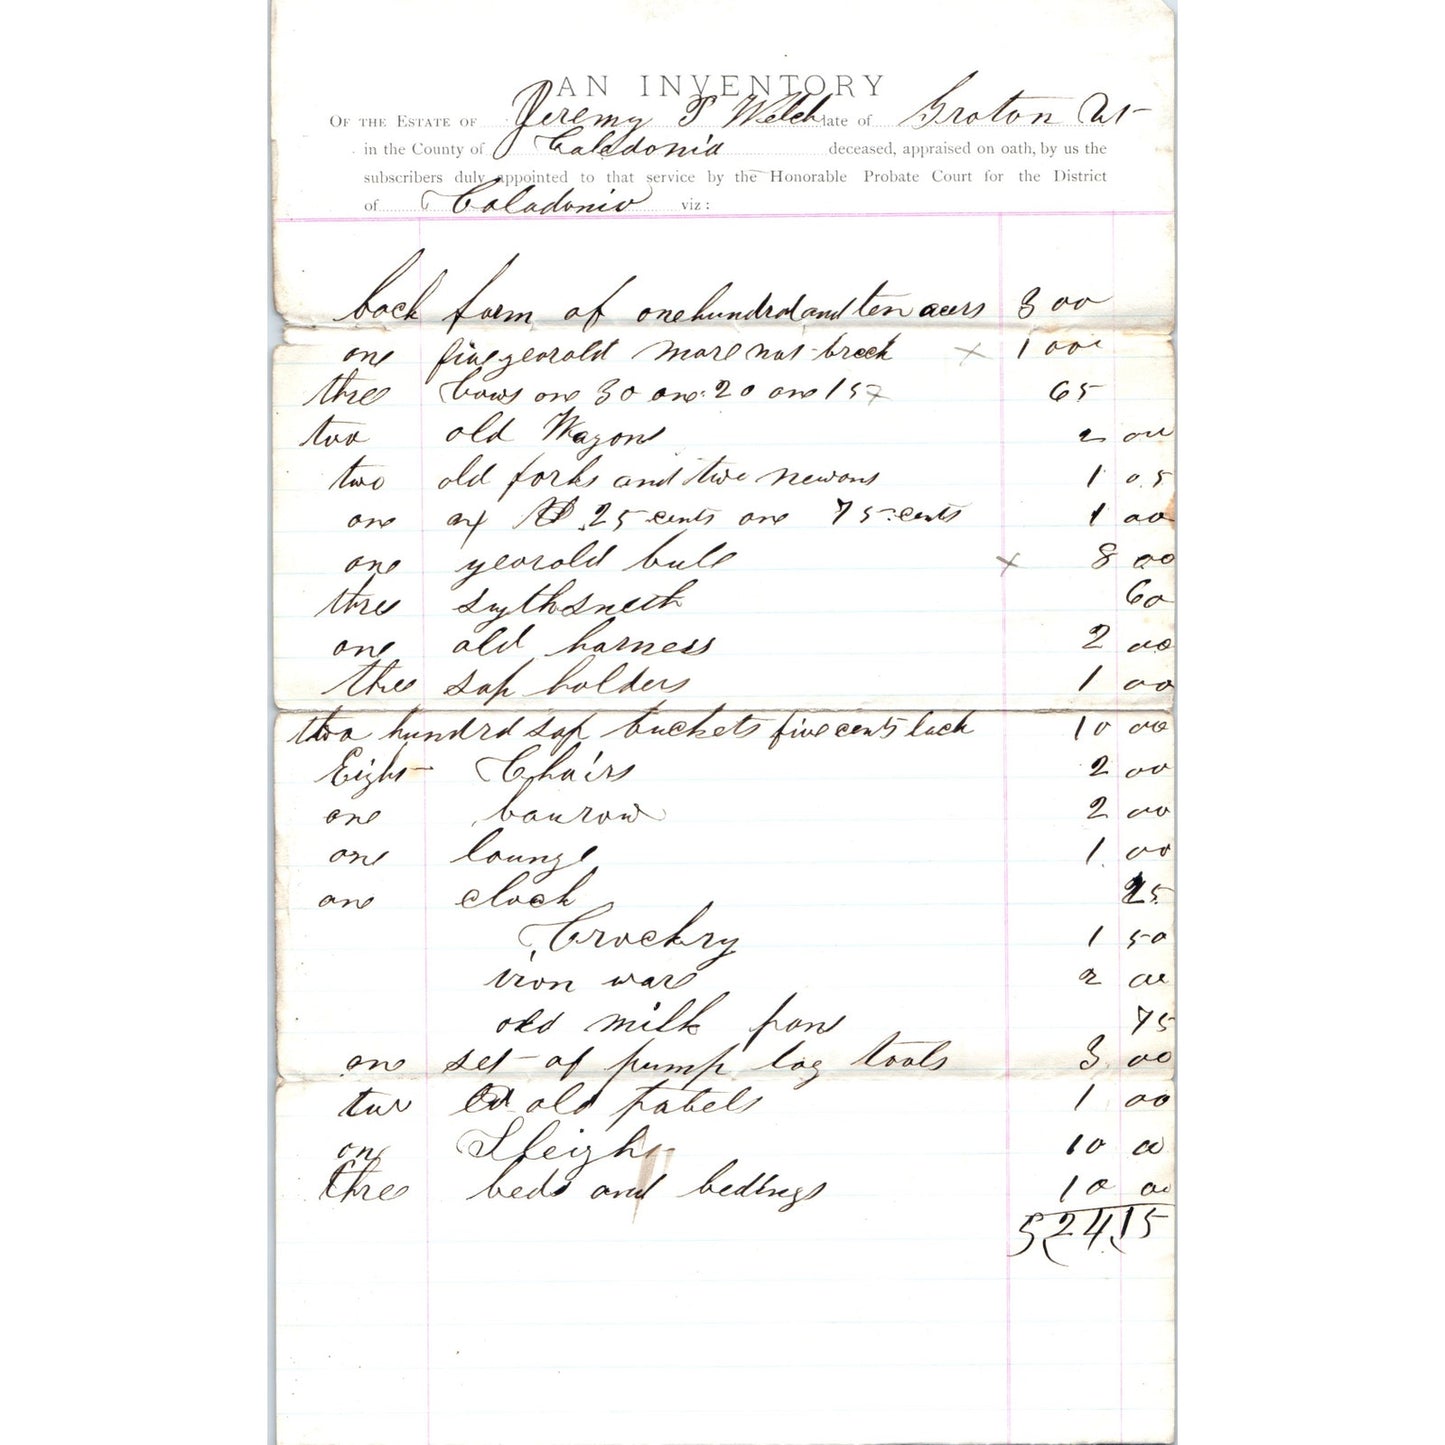 AN INVENTORY
OF THE ESTATE OF Jeremy P Welch late of Groton Vt
in the County of Caledonia deceased, appraised on oath, by us the
subscribers duly appointed to that service by the Honorable Probate Court for the District
of Caladonia viz:
back farm of one hundrd and ten acers 3 00
one five year old mare not brock x 1 00
three Cows one 30 one 20 one 15 x 65
two old Wagons 2 00
two old forks and two new ons 1 05
one ax 25 cents one 75 cents 1 00
one year old bull x 8 00
three sythsneth 60
one old harness 2 00
three sap holders 1 00
two hundrd sap buckets five cents each 10 00
Eight Chairs 2 00
one baurow 2 00
one lounge 1 00
one clock 25
Crockry 1 50
iron ware 2 00
old milk pans 75
one set of pump log tools 3 00
two old tabels 1 00
one Sleigh 10 00
three beds and bedings 10 00
524 15